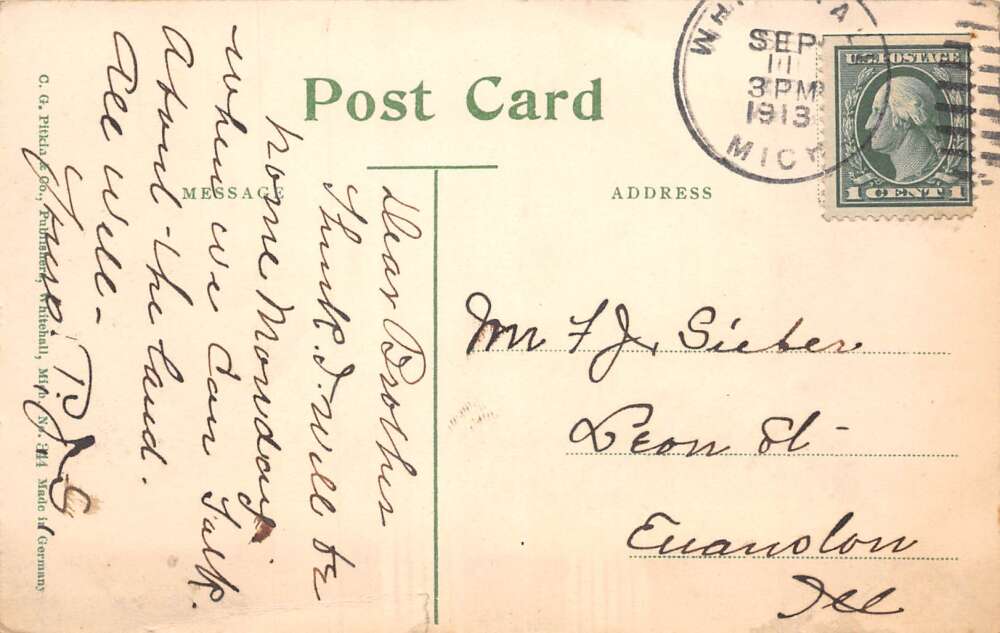 Post Card
MESSAGE
ADDRESS
SEP
3 PM
1913
MICH
U.S. POSTAGE
1 CENT 1
Dear Brother
Think I Will be
home Monday
when we can talk
About the land.
All well -
Mr F J. Sieber
Leon St -
Evanston
Ill
C. G. Pitkin & Co., Publishers, Whitehall, Mich. No. 344 Made in Germany